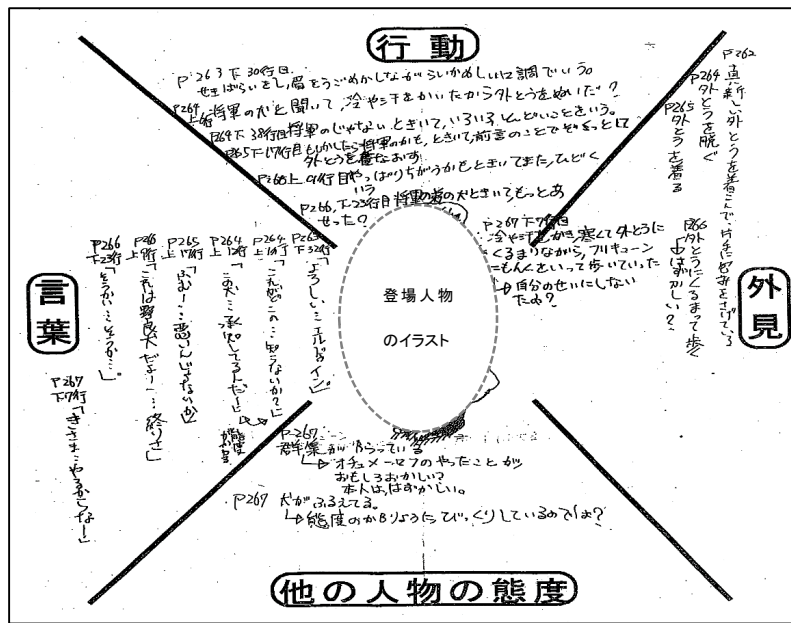 行動
P263下30行目
せきばらいをし、眉をうごめかしながらいかめしい口調でいう。
P264
上6行
将軍の犬と聞いて、冷や汗をかいたから外とうをぬいだ?
P264下38行目将軍のじゃないときいて、いろいろとひどいことをいう。
P265下17行目もしかしたら将軍のかも、ときいて前言のことでぞっとして
外とうを着なおす
やっぱりちがうかもときいてまた、ひどく
いう
P266下23行目将軍の
犬ときいてもっとあ
せった?
P267下7行目
冷や汗をかき、寒くて外とうに
くるまりながら、フリューキン
にもんくをいって歩いていった
自分のせいにしない
ため?
外見
P262
真新しい外とうを着こんで、片手に包みをさげている
P264外とうを脱ぐ
P265外とうを着る
P266外とうにくるまって歩く
はずかしい?
登場人物
のイラスト
言葉
P263
下32行
「よろしい…エルドイリン」
P264
上19行
「これがどこの…知らないか?」
P264
上12行
「この犬…承知してるんだー」
態度
かわる
P265
上17行
「ふむー!…悪いんじゃないか」
P266
上1行
「これは野良犬だよー!…終りさ」
P266
下23行
「そうかい…そうか…」
P267
下7行
「きさま…やるからなー!」
P267
群集がわらっている
オチュメーロフのやったことが
おもしろおかしい?
本人ははずかしい。
P267 犬がふるえてる。
態度のかわりようにびっくりしているのでは?
他の人物の態度